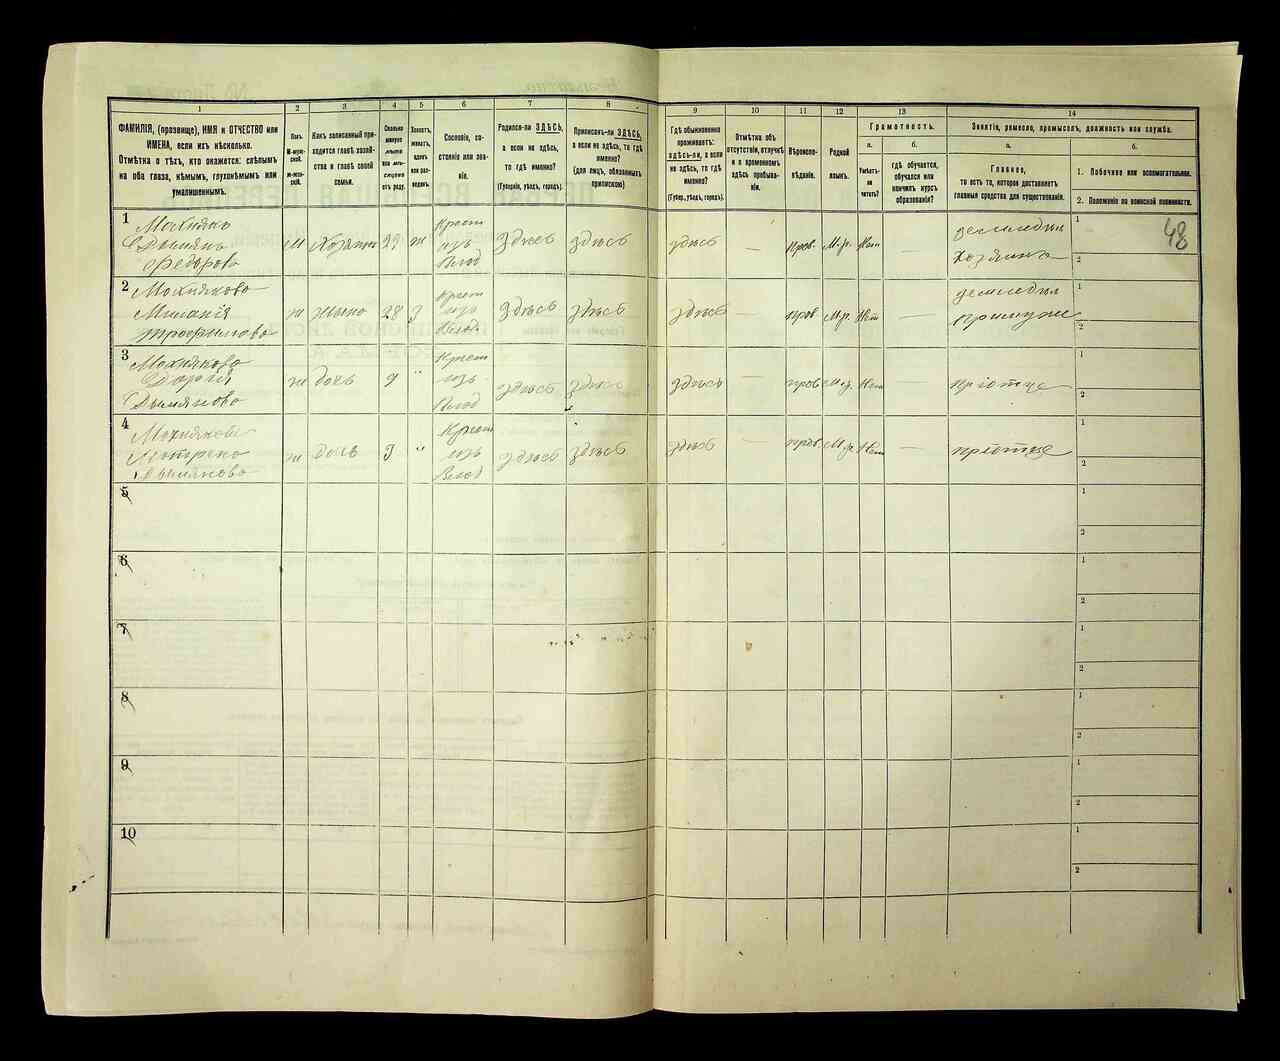 1
2
3
4
5
6
7
8
9
10
11
12
13
14
ФАМИЛІЯ, (прозвище), ИМЯ и ОТЧЕСТВО или
ИМЕНА, если ихъ нѣсколько.
Отмѣтка о тѣхъ, кто окажется: слѣпымъ
на оба глаза, нѣмымъ, глухонѣмымъ или
умалишеннымъ.
Полъ.
М-муж-
ской.
Ж-жен-
скій.
Какъ записанный при-
ходится главѣ хозяй-
ства и главѣ своей
семьи.
Сколько
минуло
лѣтъ
или мѣ-
сяцевъ
отъ роду.
Холостъ,
женатъ,
вдовъ
или раз-
веденъ.
Сословіе, со-
стояніе или зва-
ніе.
Родился-ли ЗДѢСЬ,
а если не здѣсь,
то гдѣ именно?
(Губернія, уѣздъ, городъ).
Приписанъ-ли ЗДѢСЬ,
а если не здѣсь, то гдѣ
именно?
(для лицъ, обязанныхъ
припискою)
Гдѣ обыкновенно
проживаетъ:
здѣсь-ли, а если
не здѣсь, то гдѣ
именно?
(Губер., уѣздъ, городъ).
Отмѣтка объ
отсутствіи, отлучкѣ
и о временномъ
здѣсь пребыва-
ніи.
Вѣроиспо-
вѣданіе.
Родной
языкъ.
Грамотность.
а.
б.
Умѣетъ-
ли
читать?
гдѣ обучается,
обучался или
кончилъ курсъ
образованія?
Занятіе, ремесло, промыселъ, должность или служба.
а.
б.
Главное,
то есть то, которое доставляетъ
главныя средства для существованія.
1. Побочное или вспомогательное.
2. Положеніе по воинской повинности.
48
1
Ѳедорова
м
Хозяинъ
29
ж
Крест
изъ
Влад
здѣсь
здѣсь
здѣсь
—
Прав.
Нет
—
земледѣл
Хозяинъ
1
2
2
Меланія
Трофимова
ж
жена
28
З
Крест
изъ
Влад
здѣсь
здѣсь
здѣсь
—
прав
Нет
—
земледѣл
при муже
1
2
3
Дарія
ж
дочь
9
"
Крест
изъ
Влад
здѣсь
здѣсь
здѣсь
—
прав
Нет
—
при отце
1
2
4
ж
дочь
3
"
Крест
изъ
Влад
здѣсь
здѣсь
здѣсь
—
прав
Нет
—
при отце
1
2
5
1
2
6
1
2
7
1
2
8
1
2
9
1
2
10
1
2